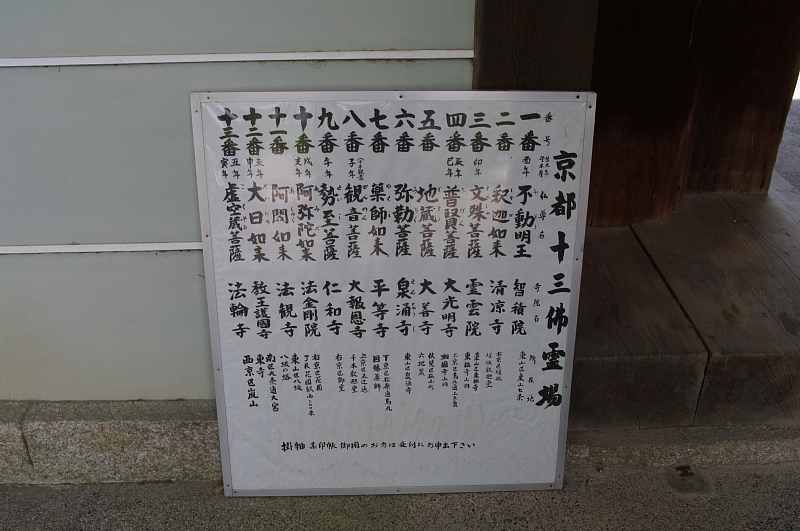 京都十三佛霊場
番号 仏尊名 寺院名 所在地
一番 酉年 不動明王 智積院 東山区東山七条
二番 釈迦如来 清凉寺 右京区嵯峨 嵯峨釈迦堂
三番 卯年 文殊菩薩 霊雲院 東山区東福寺 東福寺山内
四番 辰年 巳年 普賢菩薩 大光明寺 相國寺山内
五番 地蔵菩薩 大善寺 伏見区桃山町 六地蔵
六番 弥勒菩薩 泉涌寺 東山区泉涌寺
七番 薬師如来 平等寺 下京区松原通烏丸 因幡薬師
八番 子年 観音菩薩 大報恩寺 上京区五辻通 千本釈迦堂
九番 午年 勢至菩薩 仁和寺 右京区御室
十番 戌年 亥年 阿弥陀如来 法金剛院 右京区花園
十一番 阿閦如来 法観寺 東山区八坂 八坂の塔
十二番 未年 申年 大日如来 教王護国寺 南区九条通大宮 東寺
十三番 丑年 寅年 虚空蔵菩薩 法輪寺 西京区嵐山
掛軸 集印帳 御用のお方は受付にお申出下さい